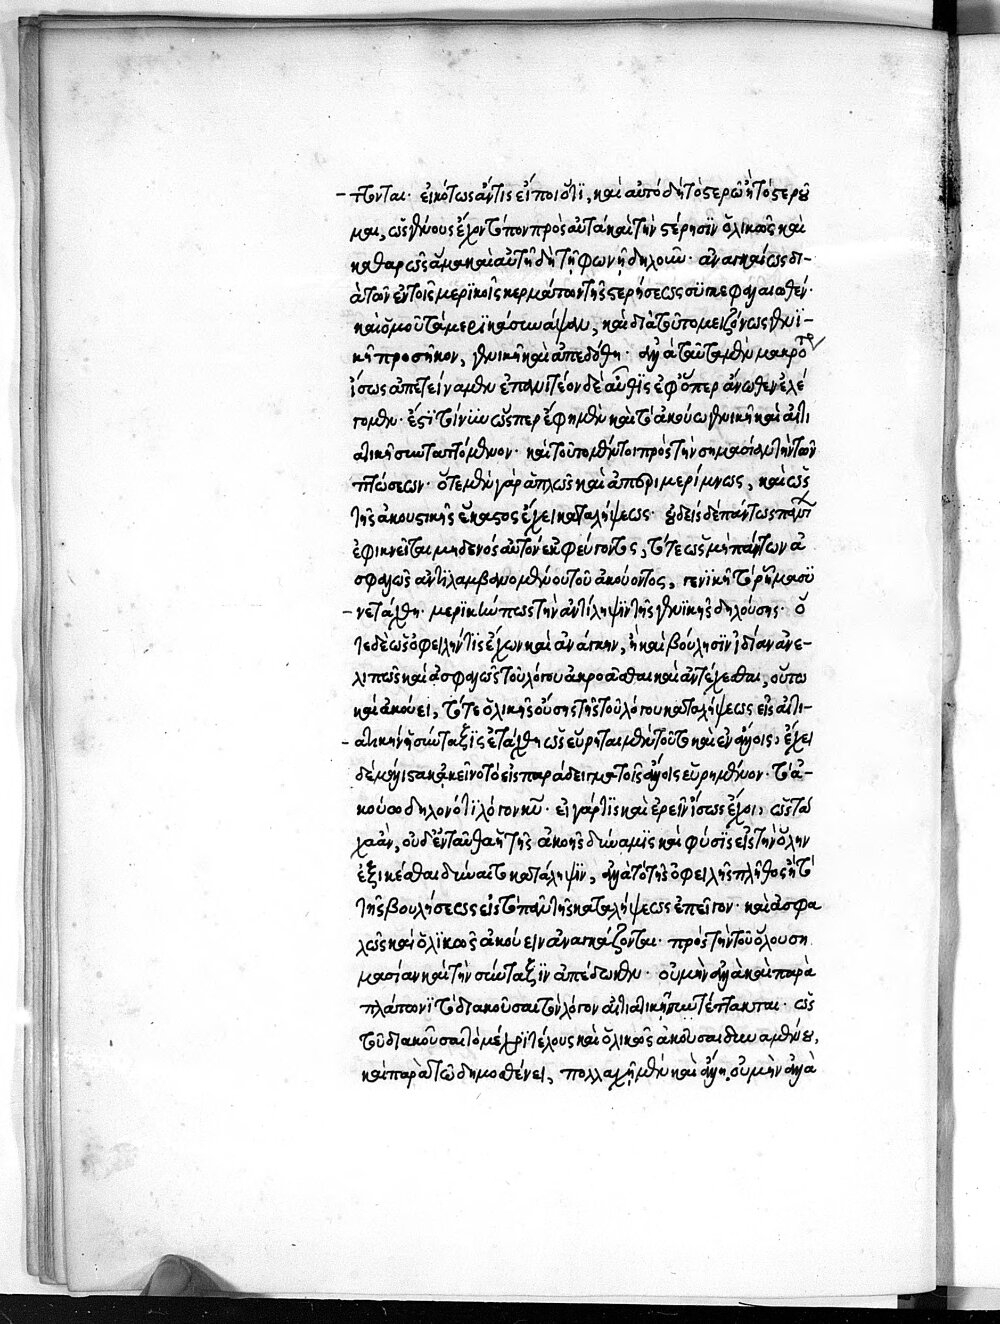 πτονται· εἰκότως ἄν τις εἴποι ὅτι, καὶ αὐτὸ δὴ τὸ στερῶ ἢ τὸ στεροῦ
μαι, ὡς γένους ἔχον τόπον πρὸς αὐτὰ καὶ τὴν στέρησιν ὁλικῶς καὶ
καθαρῶς ἅμα καὶ αὐτῇ δὴ τῇ φωνῇ δηλοῦν· ἀναγκαίως δι-
ὰ τῶν ἐν τοῖς μερικοῖς κερμάτων τῆς στερήσεως συγκεφαλαιωθὲν·
καὶ ὁμοῦ τὰ μερικὰ συνάψαν, καὶ διὰ τοῦτο μειζόνως γενι-
κῇ προσῆκον, γενικῇ καὶ ἀπεδόθη· ἀλλὰ ταῦτα μὲν μακρό
τερον
ἴσως ἀπετείναμεν ἐπανιτέον δὲ αὖθις ἐφ' ὅπερ ἄνωθεν ἐλέ
γομεν· ἔστι τοίνυν ὥσπερ ἔφημεν καὶ τὸ ἀκούω γενικῇ καὶ αἰτι
ατικῇ συνταττόμενον· καὶ τοῦτο μέντοι πρὸς τὴν σημασίαν τὴν τῶν
πτώσεων· ὅτε μὲν γὰρ ἁπλῶς καὶ ἀπεριμερίμνως, καὶ ὡς
τῆς ἀκουστικῆς ἕκαστος ἔχει καταλήψεως· οὐδεὶς δὲ πάντως παντὸς
ἐφικνεῖται μηδενὸς αὐτὸν ἐκφεύγοντος, τότε ὡς μὴ πάντων ἀ
σφαλῶς ἀντιλαμβανομένου τοῦ ἀκούοντος, γενικῇ τὸ ῥῆμα συ
νετάχθη· μερικήν πως τὴν ἀντίληψιν τῆς γενικῆς δηλούσης· ὅ
τε δὲ ὡς ὀφειλήν τις ἔχων καὶ ἀνάγκην, ἢ καὶ βούλησιν ἰδίαν ἀνε-
λιπῶς καὶ ἀσφαλῶς τοῦ λόγου ἀκροᾶσθαι καὶ ἀντέχεσθαι, οὕτω
καὶ ἀκούει, τότε ὁλικῆς οὔσης τῆς τοῦ λόγου καταλήψεως εἰς αἰτι-
ατικὴν ἡ σύνταξις ἐτάχθη ὡς εὕρηται μὲν τοῦτο καὶ ἐν ἄλλοις, ἔχει
δὲ μάλιστα κἀκεῖνο τὸ εἰς παράδειγμα τοῖς ἄλλοις εὑρημένον· τὸ ἀ-
κούσω δηλονότι λόγον κ(αὶ)· εἰ γάρ τις καὶ ἐρεῖν ἴσως ἔχοι, ὡς τά
χα ἂν, οὐδ' ἐνταῦθα ἡ τῆς ἀκοῆς δύναμις καὶ φύσις εἰς τὴν ὅλην
ἐξικέσθαι δύναιτο κατάληψιν, ἀλλὰ τὸ τῆς ὀφειλῆς πλῆθος ἢ τὸ
τῆς βουλήσεως εἰς τὸ πᾶν τῆς καταλήψεως ἐπεῖγον· καὶ ἀσφα
λῶς καὶ ὁλικῶς ἀκούειν ἀναγκάζονται· πρὸς τὴν τοῦ ὅλου ση
μασίαν καὶ τὴν σύνταξιν ἀπέδωκεν· οὐ μὴν ἀλλὰ καὶ παρὰ
πλάτωνι τὸ διακοῦσαι τὸν λόγον αἰτιατικῇ συντέτακται· ὡς
τοῦ διακοῦσαι τὸ μέχρι τέλους καὶ ὁλικῶς ἀκοῦσαι δυναμένου,
καὶ παρὰ τῷ δημοσθένει, πολλαχῇ μὲν καὶ ἄλλῃ, οὐ μὴν ἀλλὰ